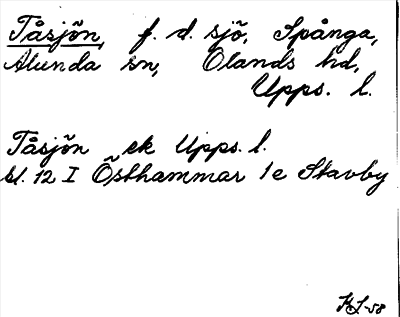 Tåsjön, f. d. sjö, Spånga,
Alunda sn, Olands hd,
Upps. l.
Tåsjön ek Upps. l.
bl. 12 I Östhammar 1e Stavby
KL-58